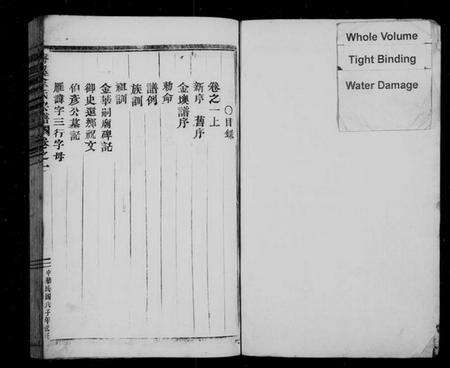 Whole Volume
Tight Binding
Water Damage
○目錄
卷之一上
新序 舊序
金墺譜序
勅命
譜例
族訓
祖訓
金華嗣廟碑記
御史還鄉祝文
伯彥公墓記
雁諱字三行字母
卷之一